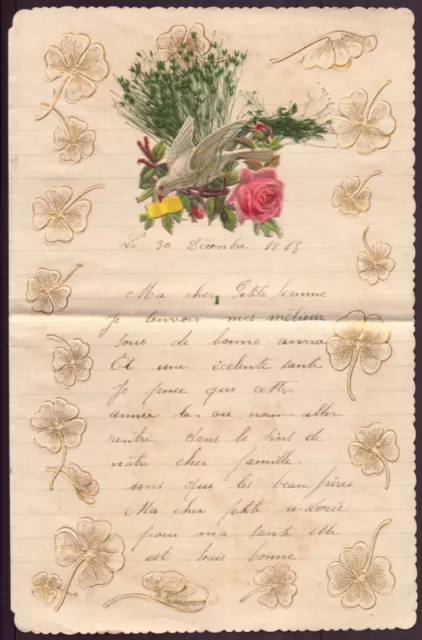 Le 30 Décenbre 1915
Ma cher Petite femme
Je tenvoir mes mélieur
soue de bonne année
Et une écelente santé
Je pense que cette
année la ou nous aller
rentré dans le sins de
notre cher famille
uns que les beau frères
Ma cher petite adorée
pour ma santé elle
est trais bonne.